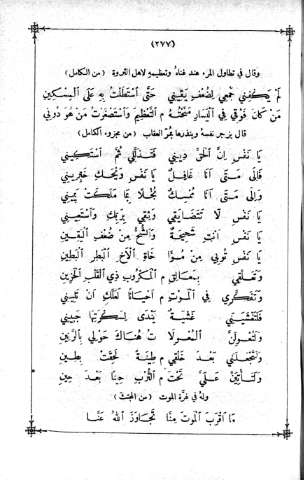 (٢٧٧)
وقال في تطاول المرء عند غناه وتعظيمه لاهل الثروة (من الكامل)
لَمْ يَكْفِنِي جَمْعِي لِضُعْفِ يَقِينِي حَتَّى اسْتَطَلْتُ بِهِ عَلَى الْمِسْكِينِ
مَنْ كَانَ فَوْقِي فِي الْيَسَارِ مَنَحْتُهُ م التَّعْظِيمَ وَاسْتَصْغَرْتُ مَنْ هُوَ دُونِي
قال يزجر نفسه وينذرها بقرب العقاب (من مجزوء الكامل)
يَا نَفْسِ إِنَّ الْحَقَّ دِينِي فَتَذَلَّلِي ثُمَّ اسْتَكِينِي
فَإِلَى مَتَى أَنَا غَافِلٌ يَا نَفْسِ وَيْحَكِ خَبِّرِينِي
وَإِلَى مَتَى أَنَا مُمْسِكٌ بُخْلًا بِمَا مَلَكَتْ يَمِينِي
يَا نَفْسِ لَا تَتَضَايَقِي وَثِقِي بِرَبِّكِ وَاسْتَعِينِي
يَا نَفْسِ أَنْتِ شَحِيحَةٌ وَالشُّحُّ مِنْ ضُعْفِ الْيَقِينِ
يَا نَفْسِ تُوبِي مِنْ مُؤَاخَاةِ الْأَخِ الْبَطِرِ الْبَطِينِ
وَتَعَلَّقِي بِمَعَالِقِ م الْمَكْرُوبِ ذِي الْقَلْبِ الْحَزِينِ
وَتَفَكَّرِي فِي الْمَوْتِ م أَحْيَانًا لَعَلَّكِ أَنْ تَلِينِي
فَلَتَغْشَيَنِّي غَشْيَةٌ يَنْدَى لِسَكْرَتِهَا جَبِينِي
وَلَتُعْوِلَنَّ الْمُعْوِلَاتُ هُنَاكَ حَوْلِي بِالرَّنِينِ
وَلَتُجْعَلَنِّي بَعْدَ خَلْقِي م طِينَةً لَحِقَتْ بِطِينِ
وَلَتَأْتِيَنَّ عَلَيَّ تَحْتَ م التُّرْبِ حِينًا بَعْدَ حِينِ
وله في غرّة الموت (من المجتث)
مَا أَقْرَبَ الْمَوْتَ مِنَّا تَجَاوَزَ اللهُ عَنَّا